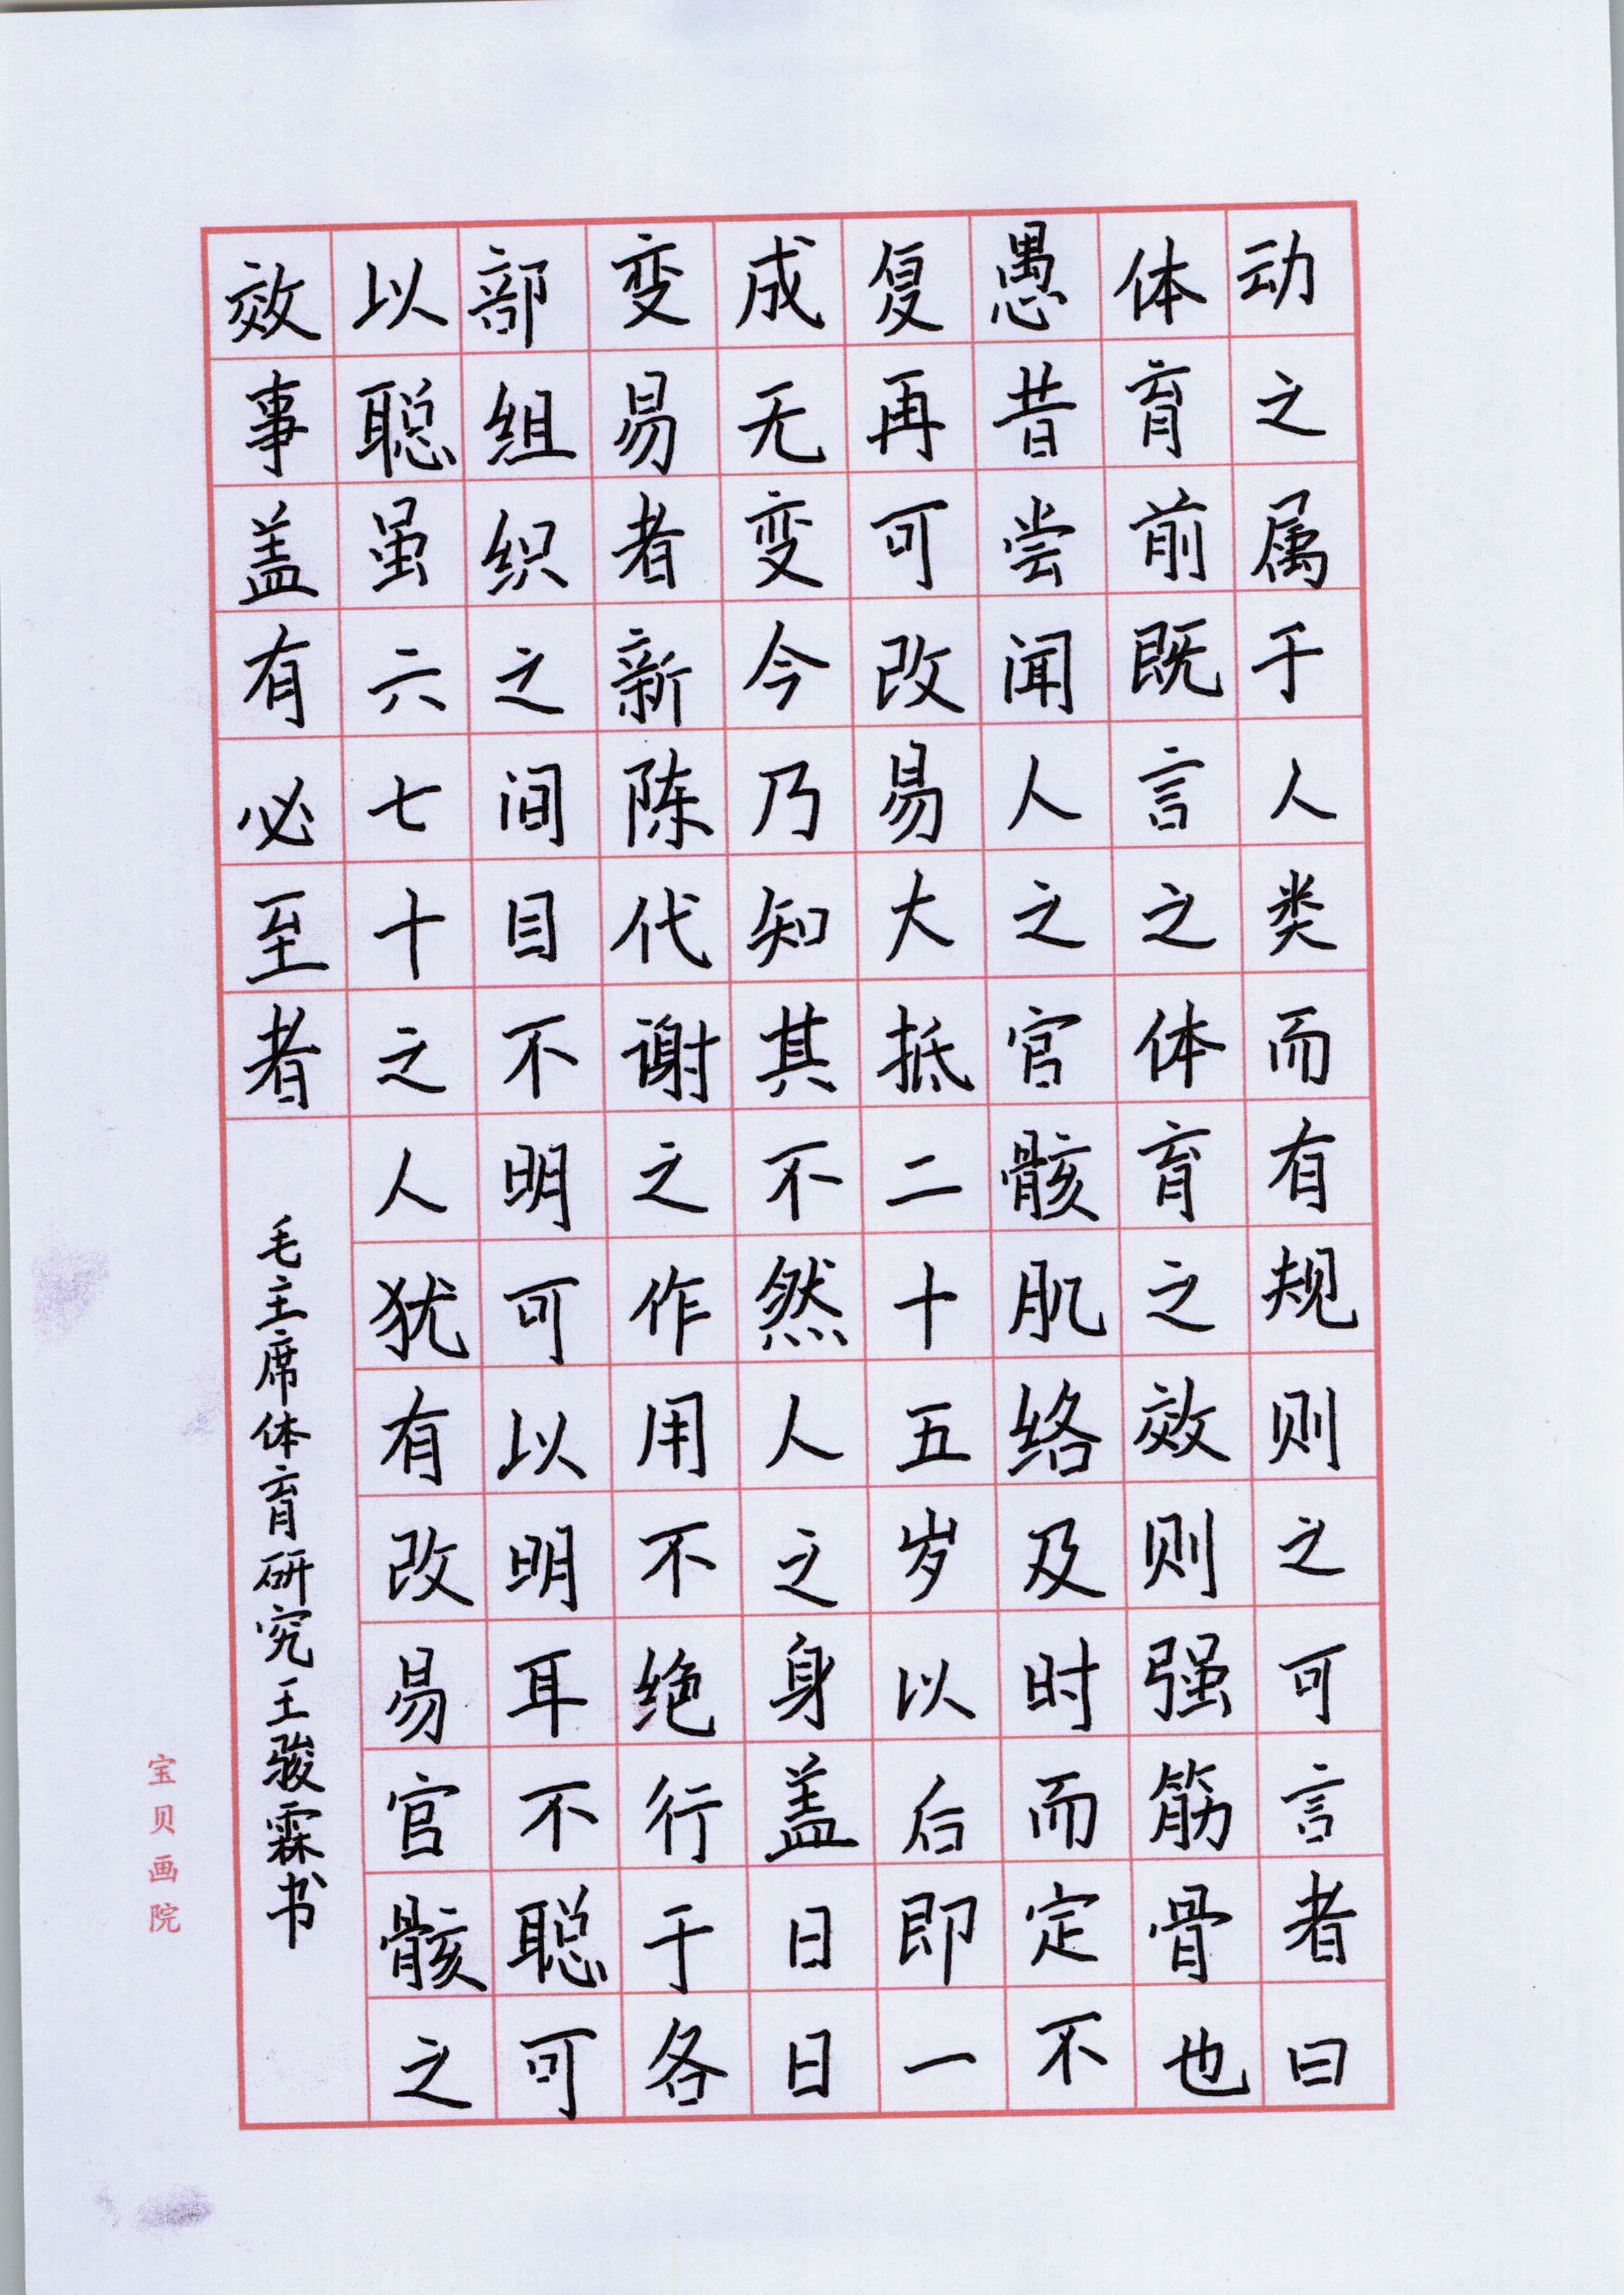 动之属于人类而有规则之可言者曰
体育前既言之体育之效则强筋骨也
愚昔尝闻人之官骸肌络及时而定不
复再可改易大抵二十五岁以后即一
成无变今乃知其不然人之身盖日日
变易者新陈代谢之作用不绝行于各
部组织之间目不明可以明耳不聪可
以聪虽六七十之人犹有改易官骸之
效事盖有必至者
毛主席体育研究王骏霖书
宝贝画院